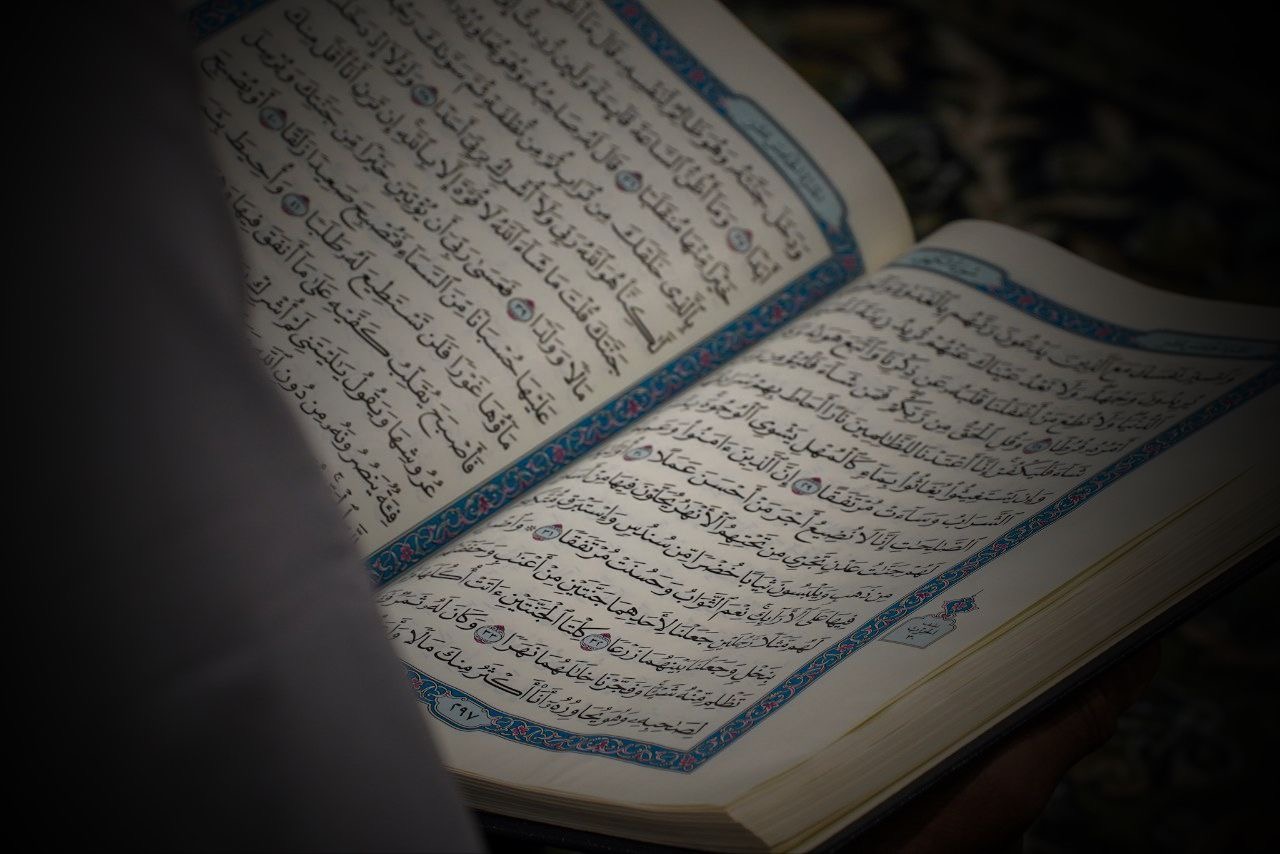 وَٱصۡبِرۡ نَفۡسَكَ مَعَ ٱلَّذِينَ يَدۡعُونَ رَبَّهُم بِٱلۡغَدَوٰةِ
يُرِيدُونَ وَجۡهَهُۥۖ وَلَا تَعۡدُ عَيۡنَاكَ عَنۡهُمۡ تُرِيدُ زِينَةَ
ٱلدُّنۡيَاۖ وَلَا تُطِعۡ مَنۡ أَغۡفَلۡنَا قَلۡبَهُۥ عَن ذِكۡرِنَا وَٱتَّبَعَ هَوَىٰهُ
أَمۡرُهُۥ فُرُطٗا ٢٨ وَقُلِ ٱلۡحَقُّ مِن رَّبِّكُمۡۖ فَمَن شَآءَ فَلۡيُؤۡمِن
شَآءَ فَلۡيَكۡفُرۡۚ إِنَّآ أَعۡتَدۡنَا لِلظَّٰلِمِينَ نَارًا أَحَاطَ بِهِمۡ
وَإِن يَسۡتَغِيثُواْ يُغَاثُواْ بِمَآءٖ كَٱلۡمُهۡلِ يَشۡوِي ٱلۡوُجُوهَۚ
ٱلشَّرَابُ وَسَآءَتۡ مُرۡتَفَقًا ٢٩ إِنَّ ٱلَّذِينَ ءَامَنُواْ
ٱلصَّٰلِحَٰتِ إِنَّا لَا نُضِيعُ أَجۡرَ مَنۡ أَحۡسَنَ عَمَلًا ٣٠
لَهُمۡ جَنَّٰتُ عَدۡنٖ تَجۡرِي مِن تَحۡتِهِمُ ٱلۡأَنۡهَٰرُ يُحَلَّوۡنَ فِيهَا مِنۡ
مِن ذَهَبٖ وَيَلۡبَسُونَ ثِيَابًا خُضۡرٗا مِّن سُندُسٖ وَإِسۡتَبۡرَقٖ
فِيهَا عَلَى ٱلۡأَرَآئِكِۚ نِعۡمَ ٱلثَّوَابُ وَحَسُنَتۡ مُرۡتَفَقٗا ٣١ ۞
لَهُم مَّثَلٗا رَّجُلَيۡنِ جَعَلۡنَا لِأَحَدِهِمَا جَنَّتَيۡنِ مِنۡ أَعۡنَٰبٖ
بِنَخۡلٖ وَجَعَلۡنَا بَيۡنَهُمَا زَرۡعٗا ٣٢ كِلۡتَا ٱلۡجَنَّتَيۡنِ ءَاتَتۡ أُكُلَهَا
تَظۡلِم مِّنۡهُ شَيۡـٔٗاۚ وَفَجَّرۡنَا خِلَٰلَهُمَا نَهَرٗا ٣٣ وَكَانَ لَهُۥ ثَمَرٞ
لِصَٰحِبِهِۦ وَهُوَ يُحَاوِرُهُۥٓ أَنَا۠ أَكۡثَرُ مِنكَ مَالٗا
٢٩٧
وَدَخَلَ جَنَّتَهُۥ وَهُوَ ظَالِمٞ لِّنَفۡسِهِۦ قَالَ مَآ أَظُنُّ
أَبَدٗا ٣٥ وَمَآ أَظُنُّ ٱلسَّاعَةَ قَآئِمَةٗ وَلَئِن رُّدِدتُّ
خَيۡرٗا مِّنۡهَا مُنقَلَبٗا ٣٦ قَالَ لَهُۥ صَاحِبُهُۥ وَهُوَ يُحَاوِرُهُۥٓ
بِٱلَّذِي خَلَقَكَ مِن تُرَابٖ ثُمَّ مِن نُّطۡفَةٖ ثُمَّ سَوَّىٰكَ رَجُلٗا
لَّٰكِنَّا۠ هُوَ ٱللَّهُ رَبِّي وَلَآ أُشۡرِكُ بِرَبِّيٓ أَحَدٗا ٣٨ وَلَوۡلَآ إِذۡ دَخَلۡتَ
جَنَّتَكَ قُلۡتَ مَا شَآءَ ٱللَّهُ لَا قُوَّةَ إِلَّا بِٱللَّهِۚ إِن تَرَنِ أَنَا۠ أَقَلَّ مِنكَ
مَالٗا وَوَلَدٗا ٣٩ فَعَسَىٰ رَبِّيٓ أَن يُؤۡتِيَنِ خَيۡرٗا مِّن جَنَّتِكَ وَيُرۡسِلَ
عَلَيۡهَا حُسۡبَانٗا مِّنَ ٱلسَّمَآءِ فَتُصۡبِحَ صَعِيدٗا زَلَقًا ٤٠ أَوۡ يُصۡبِحَ
مَآؤُهَا غَوۡرٗا فَلَن تَسۡتَطِيعَ لَهُۥ طَلَبٗا ٤١ وَأُحِيطَ
فَأَصۡبَحَ يُقَلِّبُ كَفَّيۡهِ عَلَىٰ مَآ أَنفَقَ فِيهَا
عُرُوشِهَا وَيَقُولُ يَٰلَيۡتَنِي لَمۡ أُشۡرِكۡ
فِئَةٞ يَنصُرُونَهُۥ مِن دُونِ ٱللَّهِ